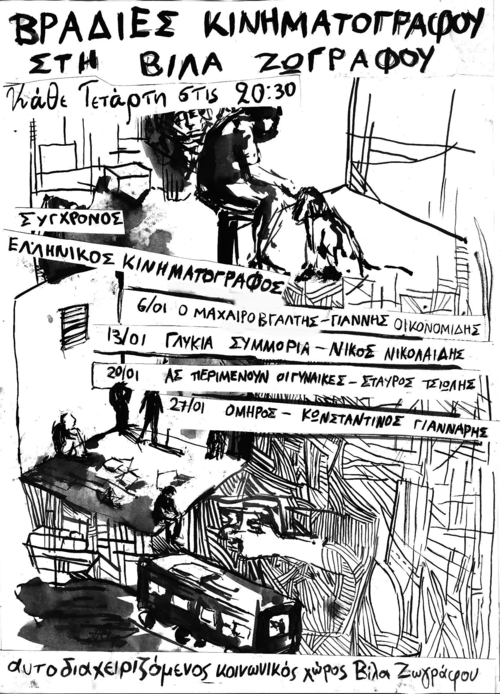 ΒΡΑΔΙΕΣ ΚΙΝΗΜΑΤΟΓΡΑΦΟΥ
ΣΤΗ ΒΙΛΑ ΖΩΓΡΑΦΟΥ
Κάθε Τετάρτη στις 20:30
ΣΥΓΧΡΟΝΟΣ
ΕΛΛΗΝΙΚΟΣ ΚΙΝΗΜΑΤΟΓΡΑΦΟΣ
6/01 Ο ΜΑΧΑΙΡΟΒΓΑΛΤΗΣ - ΓΙΑΝΝΗΣ ΟΙΚΟΝΟΜΙΔΗΣ
13/01 ΓΛΥΚΙΑ ΣΥΜΜΟΡΙΑ - ΝΙΚΟΣ ΝΙΚΟΛΑΙΔΗΣ
20/01 ΑΣ ΠΕΡΙΜΕΝΟΥΝ ΟΙ ΓΥΝΑΙΚΕΣ - ΣΤΑΥΡΟΣ ΤΣΙΩΛΗΣ
27/01 ΟΜΗΡΟΣ - ΚΩΝΣΤΑΝΤΙΝΟΣ ΓΙΑΝΝΑΡΗΣ
αυτοδιαχειριζόμενος κοινωνικός χώρος Βίλα Ζωγράφου